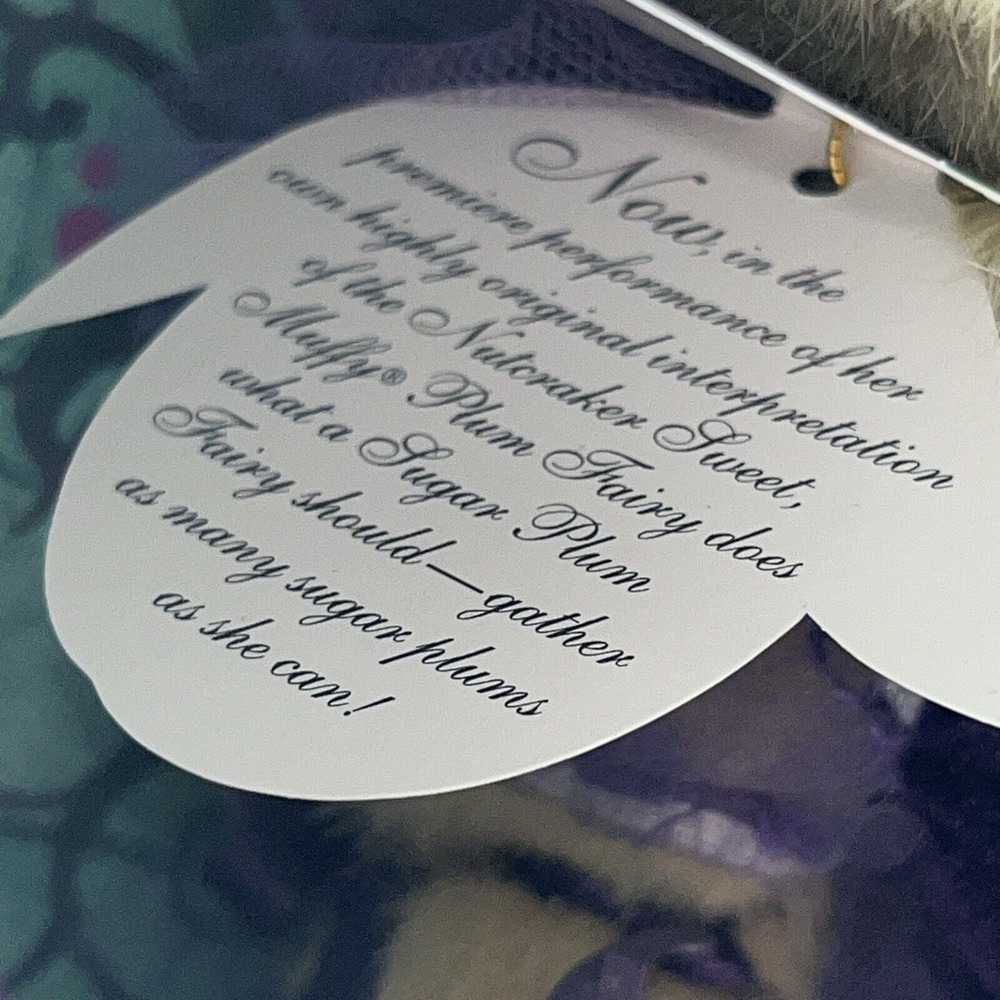 Now, in the
premiere performance of her
own highly original interpretation
of the Nutcraker Sweet,
Muffy® Plum Fairy does
what a Sugar Plum
Fairy should—gather
as many sugar plums
as she can!